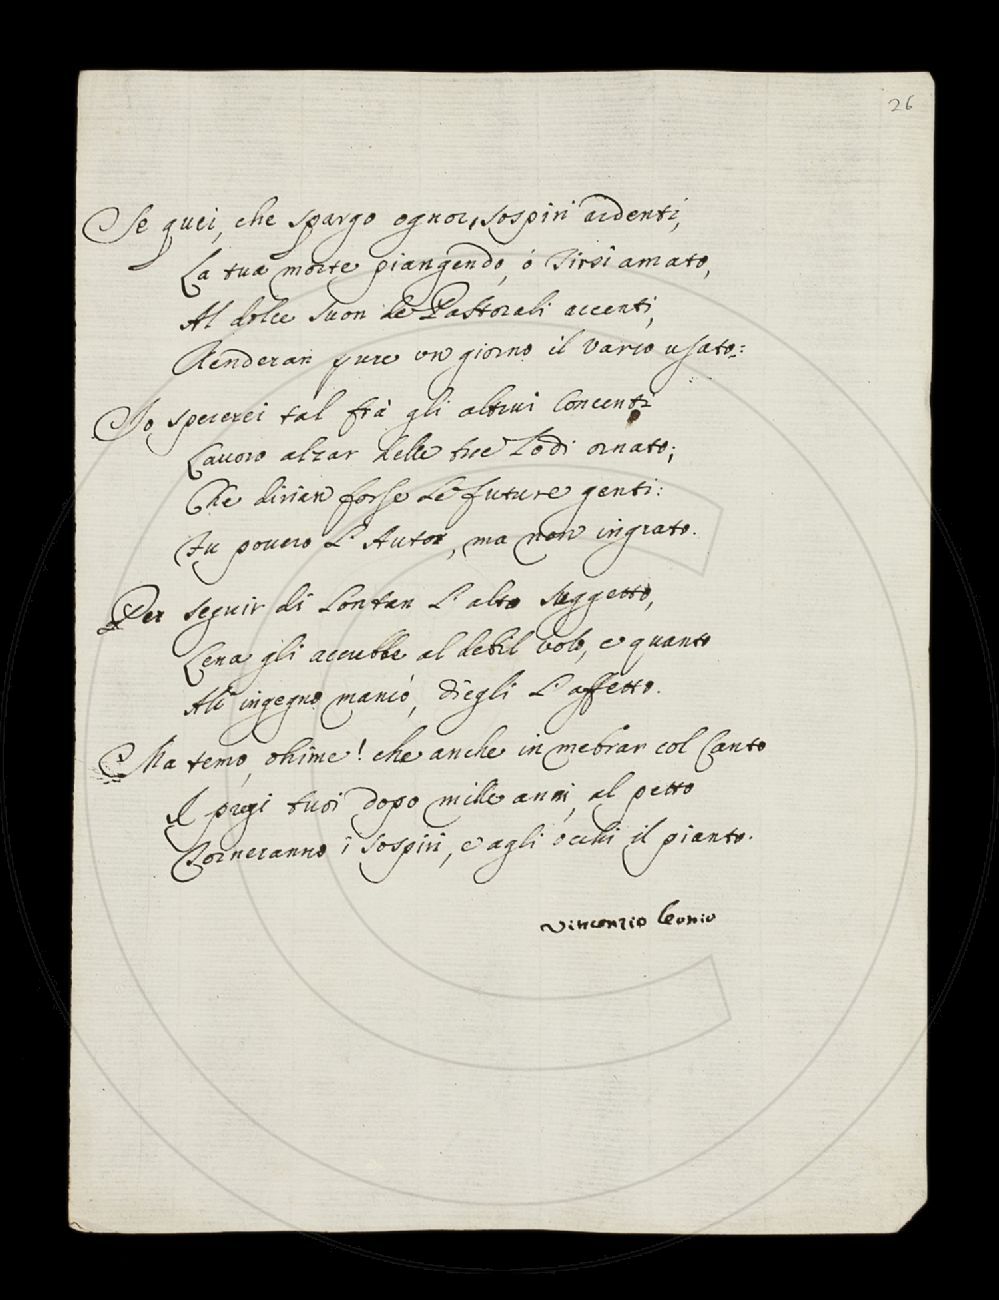 26
Se quei, che spargo ognor, sospiri ardenti,
La tua morte piangendo, ó Tirsi amato,
Al dolce suon de Pastorali accenti,
Renderan pure un giorno il varco usato:
Io spererei tal frà gli altrui Concenti
Lavoro alzar delle tue Lodi ornato;
Che dirian forse Le future genti:
Fu povero L'Autor, ma non ingrato.
Per seguir di Lontan L'alto suggetto,
Lena gli accrebbe al debil volo, e quanto
All'ingegno mancó, diegli L'affetto.
Ma temo, ohime! che anche in membrar col Canto
I pregi tuoi dopo mille anni, al petto
Torneranno i sospiri, e agli occhi il pianto.
Vincenzio Leonio